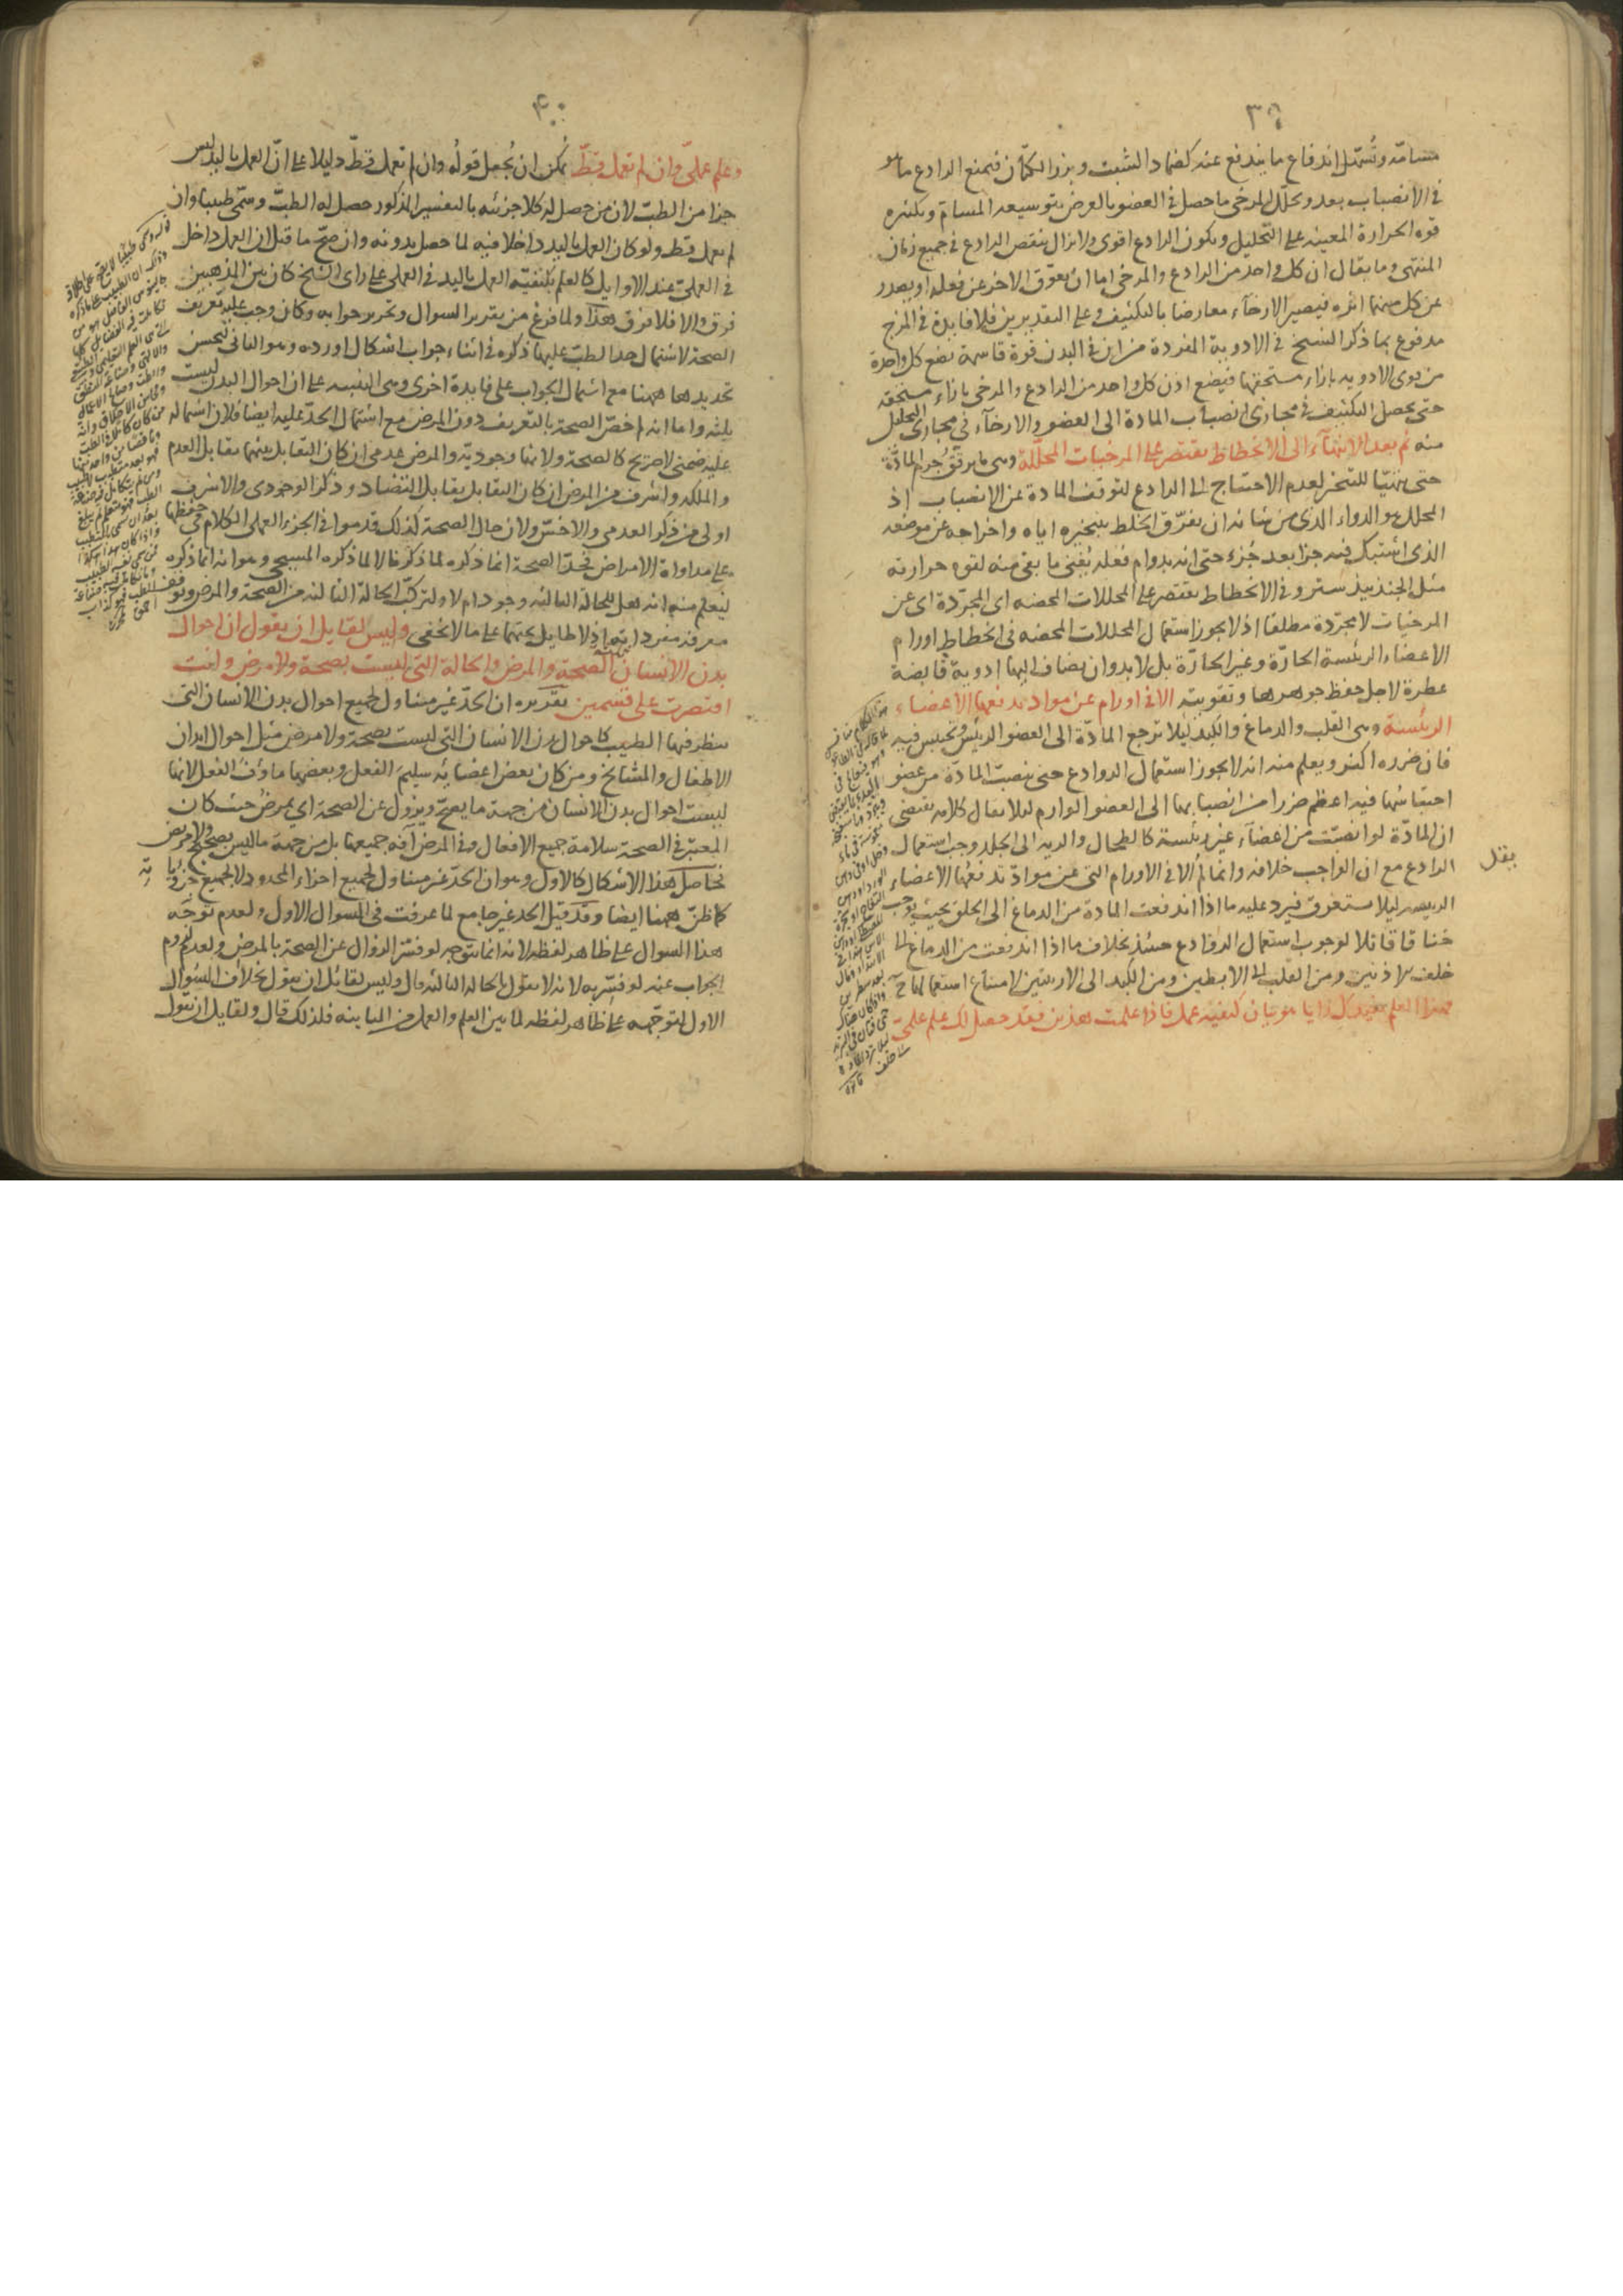 ٣٩
مسامه وتسهل اندفاع ما يندفع عنه كضماد الشبت وبزر الكتان فيمنع الرادع ما هو
في الانصباب بعد ويحلل المرخي ما حصل في العضو بالعرض بتوسيعه المسام وبكثره
قوه الحرارة المعينه على التحليل ويكون الرادع اقوى ولا يزال ينقص الرادع في جميع زمان
المنتهى وما يقال ان كل واحد من الرادع والمرخي اما ان يعوق الاخر عن فعله او يصدر
عن كل منهما اثره فيصير الارخآء معارضا بالتكثيف وعلى التقديرين فلا فايدة في المزج
مدفوع بما ذكر الشيخ في الادوية المفردة من ان في البدن قوة قاسمة تضع كل واحدة
من قوى الادويه بازاء مستحقها فيضع اذن كل واحد من الرادع والمرخي بازاء مستحقه
حتى يحصل التكثيف في مجاري انصباب المادة الى العضو والارخآء في مجاري التحليل
منه ثم بعد الانتهآء الى الانحطاط يقتصر على المرخيات المحللة وهي ما يرقق جرم المادة
حتى يتهيّا للتبخر لعدم الاحتياج الى الرادع لتوقف المادة عن الانصباب اذ
المحلل هو الدواء الذي من شانه ان يفرق الخلط بتبخيره اياه واخراجه عن موضعه
الذي اشتبك فيه جزا بعد جزء حتى انه بدوام فعله يُفني ما بقى منه لقوه حرارته
مثل الجندبيدستر وفي الانحطاط يقتصر على المحللات المحضه اى المجرّدة اى عن
المرخيات لا مجرّدة مطلقا اذ لا يجوز استعمال المحللات المحضه في انحطاط اورام
الاعضاء الرئيسة الحارّة وغير الحارّة بل لا بد وان يضاف اليها ادوية قابضة
عطرة لاجل حفظ جوهرها وتقويته الا في اورام عن مواد تدفعها الاعضاء
الرئيسة وهي القلب والدماغ والكبد ليلا ترجع المادّة الى العضو الرئيس وتحتبس فيه
فان ضرره اكثر ويعلم منه انه لا يجوز استعمال الروادع حتى ينصبّ المادّة من عضو
احتباسها فيه اعظم ضررا من انصبابها الى العضو الوارم ليلا يقال كلامه يقتضي
ان المادّة لو انصبّت من اعضآء غير رئيسة كالطحال والريه الى الجلد وجب استعمال
الرادع مع ان الواجب خلافه وانما لم الا في الاورام التي عن موادّ تدفعها الاعضاء
يقل
الرييسه ليلا يستغرق فيرد عليه ما اذا اندفعت المادة من الدماغ الى الحلق بحيث يوجب
خناقا قاتلا لوجوب استعمال الروادع حينئذ بخلاف ما اذا اندفعت من الدماغ الى
خلف الاذنين ومن القلب الى الابطين ومن الكبد الى الاربيتين لامتناع استعمالها ح
فهذا العلم يفيدك رايا هو بيان كيفيه عمل فاذا علمت هذين فقد حصل لك علم علمي
٤٠
وعلم عملي وان لم تعمل قط يمكن ان يُجعل قولُه وان لم تعمل قط دليلا على انّ العمل باليد ليس
جزا من الطبّ لان من حصل له كلا جزئيه بالتفسير المذكور حصل له الطبّ وسمّى طبيبا وان
لم يعمل قط ولو كان العمل باليد داخلا فيه لما حصل بدونه وان صحّ ما قيل ان العمل داخل
في العملي عند الاوايل كالعلم بكيفيّه العمل باليد في العملي على راى الشيخ كان بين المذهبين
فرق والا فلا فرق هذا ولما فرغ من تقرير السوال وتحرير جوابه وكان وجب عليه تعريف
الصحة لاشتمال حد الطبّ عليها ذكره في اثناء جواب اشكال اورده وهو الثاني ليحسن
تحديدها ههنا مع اشتمال الجواب على فايدة اخرى وهي التنبيه على ان احوال البدن ليست
ثلثه واما انه لم خصّ الصحة بالتعريف دون المرض مع اشتمال الحدّ عليه ايضا فلان اشتماله
عليه ضمني لا صريح كالصحة ولانها وجوديّه والمرض عدمي ان كان التقابل بينهما تقابل العدم
والملكه واشرف من المرض ان كان التقابل تقابل التضاد وذكر الوجودي والاشرف
اولى من ذكر العدمي والاخسّ ولان حال الصحة كذلك قدموا في الجزء العملي الكلام في حفظها
على مداواة الامراض فحدّ الصحة انما ذكره لما ذكرنا لا لما ذكره المسيحي وهو انه انما ذكره
ليعلم منه انه هل للحالة الثالثه وجود ام لا ولتركّب الحالة الثالثه من الصحة والمرض وتوقف
معرفه مفرداتها اذ لا طايل تحتهما على ما لا يخفى وليس لقايل ان يقول ان احوال
بدن الانسان الصحة والمرض والحالة التي ليست بصحة ولا مرض وانت
اقتصرت على قسمين تقريره ان الحدّ غير متناول لجميع احوال بدن الانسان التي
ينظر فيها الطبيب كاحوال بدن الانسان التي ليست بصحة ولا مرض مثل احوال ابدان
الاطفال والمشايخ ومن كان بعض اعضايه سليم الفعل وبعضها ماؤف الفعل لانها
ليست احوال بدن الانسان من جهة ما يصح ويزول عن الصحة اي يمرض حيث كان
المعتبر في الصحة سلامة جميع الافعال وفي المرض آفه جميعها بل من جهة ما ليس يصح ولا يمرض
فحاصل هذا الاشكال كالاول وهو ان الحدّ غير متناول لجميع اجزاء المحدود لا لجميع جزوياته
كما ظنّ ههنا ايضا وقد قيل الحد غير جامع لما عرفت في السوال الاول ولعدم توجّه
هذا السوال على ظاهر لفظه لانه انما يتوجه لو فسّر الزوال عن الصحة بالمرض ولعدم لزوم
الجواب عنه لو فسّر به لانه لا يقول بالحاله الثالثه قال وليس لقائل ان يقول بخلاف السؤال
الاول لتوجّهه على ظاهر لفظه لما بين العلم والعمل من المباينه فلذلك قال ولقايل ان يقول